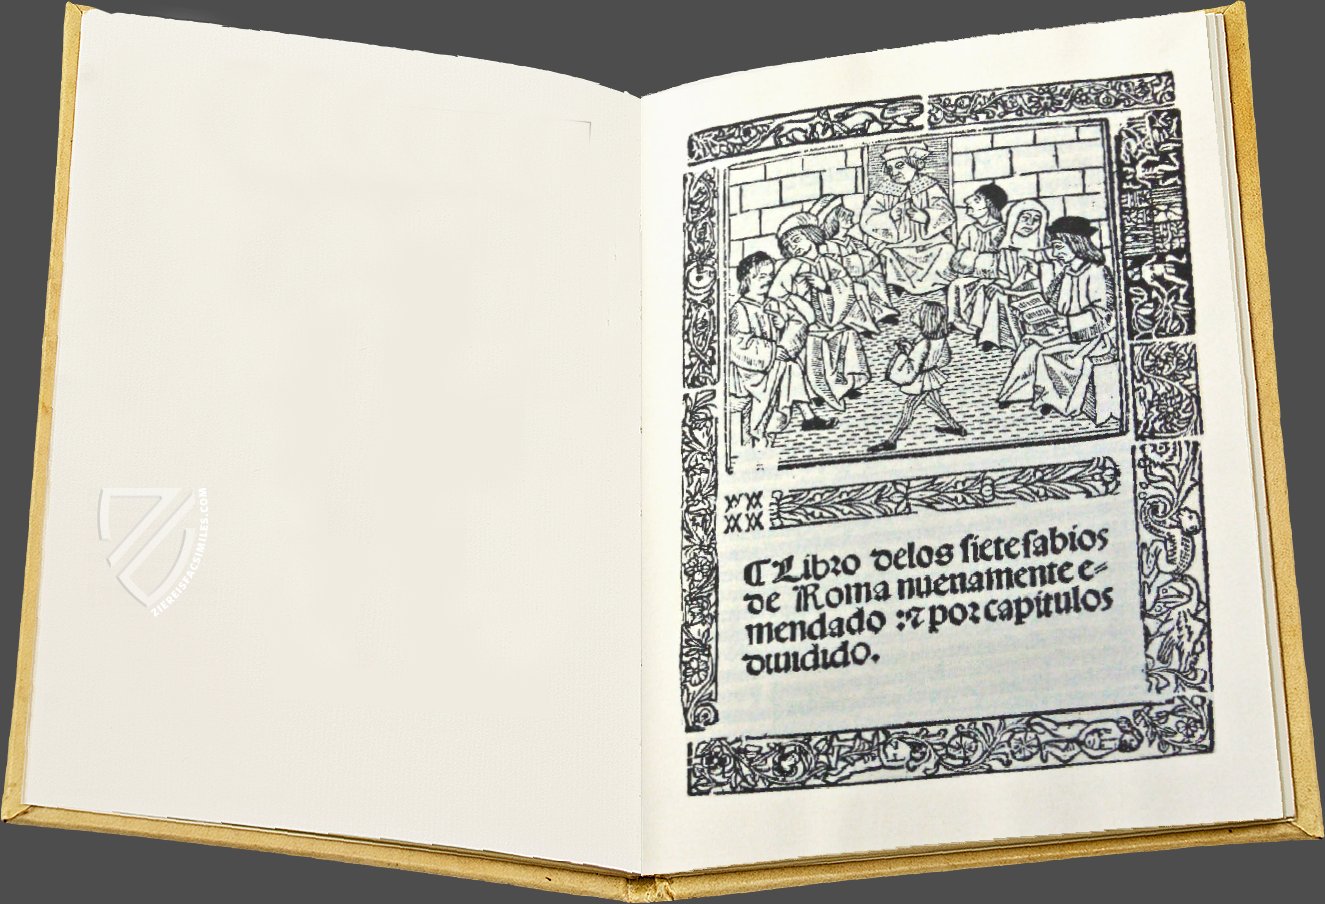 ZIEREISFACSIMILES.COM
¶Libro delos sietesabios
de Roma nueuamente e-
mendado :⁊ por capitulos
diuidido.